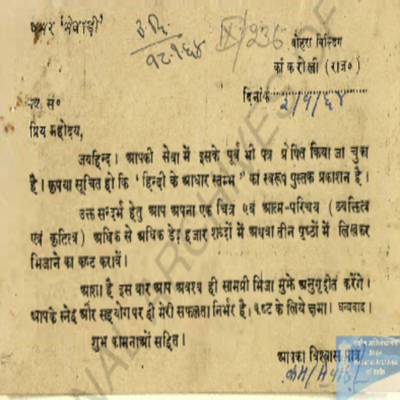 क़मर 'मेवाड़ी'
उ. दि.
१८-१-६४
IX/236
बोहरा बिल्डिंग
कांकरोली (राज०)
दिनांक २/१/६४
पत्र सं०
प्रिय महोदय,
जयहिन्द। आपकी सेवा में इसके पूर्व भी पत्र प्रेषित किया जा चुका
है। कृपया सूचित हो कि 'हिन्दी के आधार स्तम्भ' का स्वरूप पुस्तक प्रकाशन है।
उक्त सन्दर्भ हेतु आप अपना एक चित्र एवं आत्म-परिचय (व्यक्तित्व
एवं कृतित्व) अधिक से अधिक डेढ़ हजार शब्दों में अथवा तीन पृष्ठों में लिखकर
भिजाने का कष्ट करावें।
आशा है इस बार आप अवश्य ही सामग्री भिजा मुझे अनुगृहीत करेंगे।
आपके स्नेह और सहयोग पर ही मेरी सफलता निर्भर है। कष्ट के लिये क्षमा। धन्यवाद।
शुभ कामनाओं सहित।
आपका विश्वास पात्र